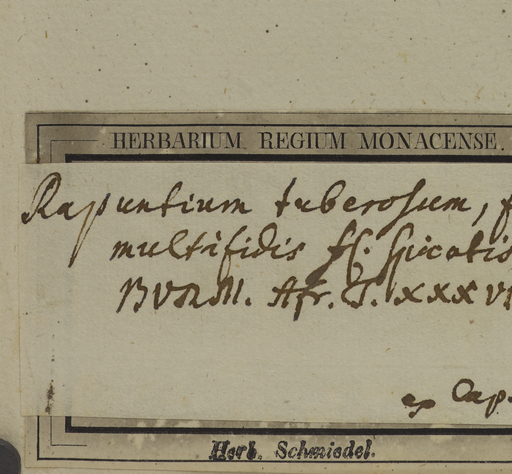 HERBARIUM REGIUM MONACENSE.
Rapuntium tuberosum, f
multifidis fl. spicatis
BURM. Afr. T. XXXVI
ex Cap.
Herb. Schmiedel.